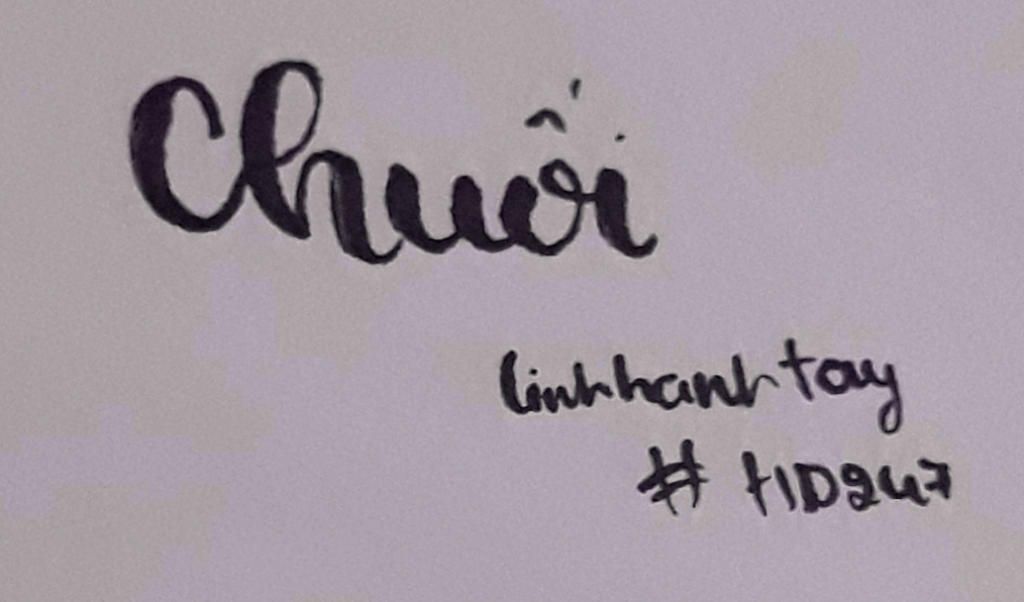 Chuối
linhhanhtay
# HD247